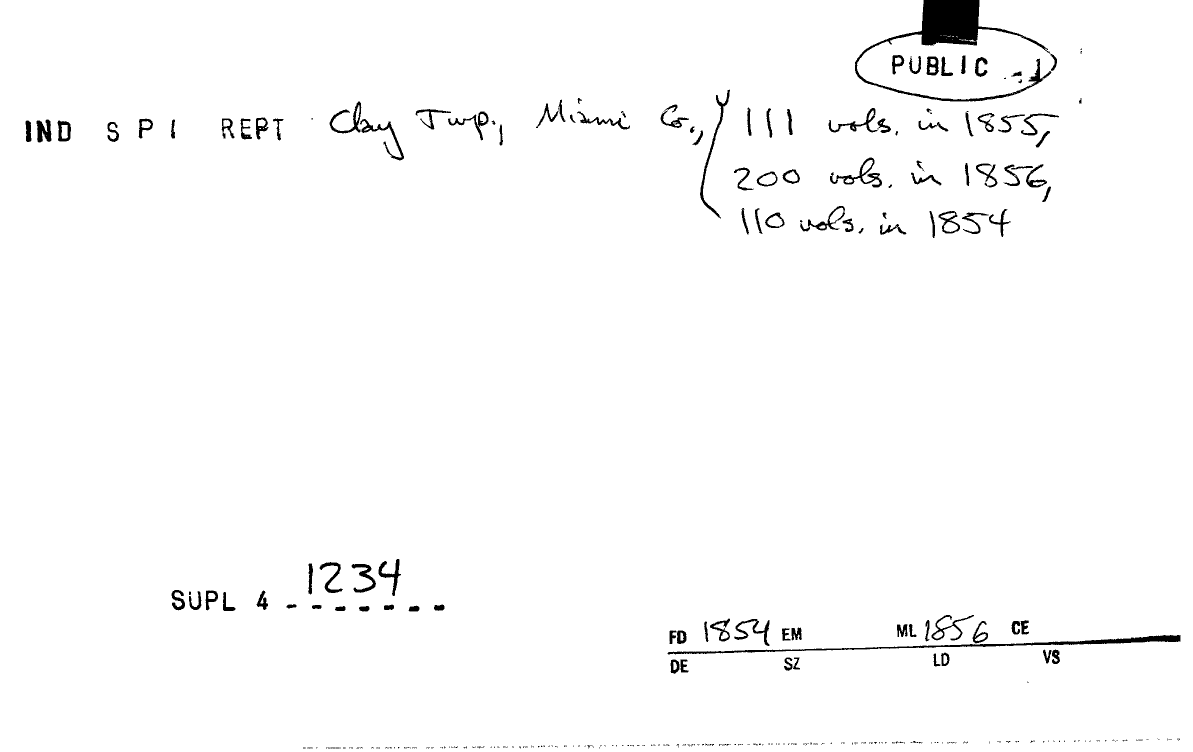 PUBLIC
IND S P I REPT Clay Twp., Miami Co., 111 vols. in 1855,
200 vols. in 1856,
110 vols. in 1854
1234
SUPL 4 - - - - - - -
FD 1854 EM ML 1856 CE
DE SZ LD VS